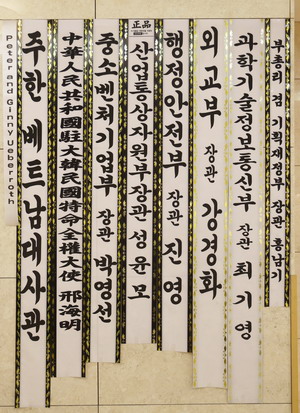 부총리 겸 기획재정부 장관 홍남기
과학기술정보통신부 장관 최기영
외교부 장관 강경화
행정안전부 장관 진영
正品
산업통상자원부장관 성윤모
중소벤처기업부 장관 박영선
中華人民共和國駐大韓民國特命全權大使 邢海明
주한 베트남대사관
Peter and Ginny Ueberroth